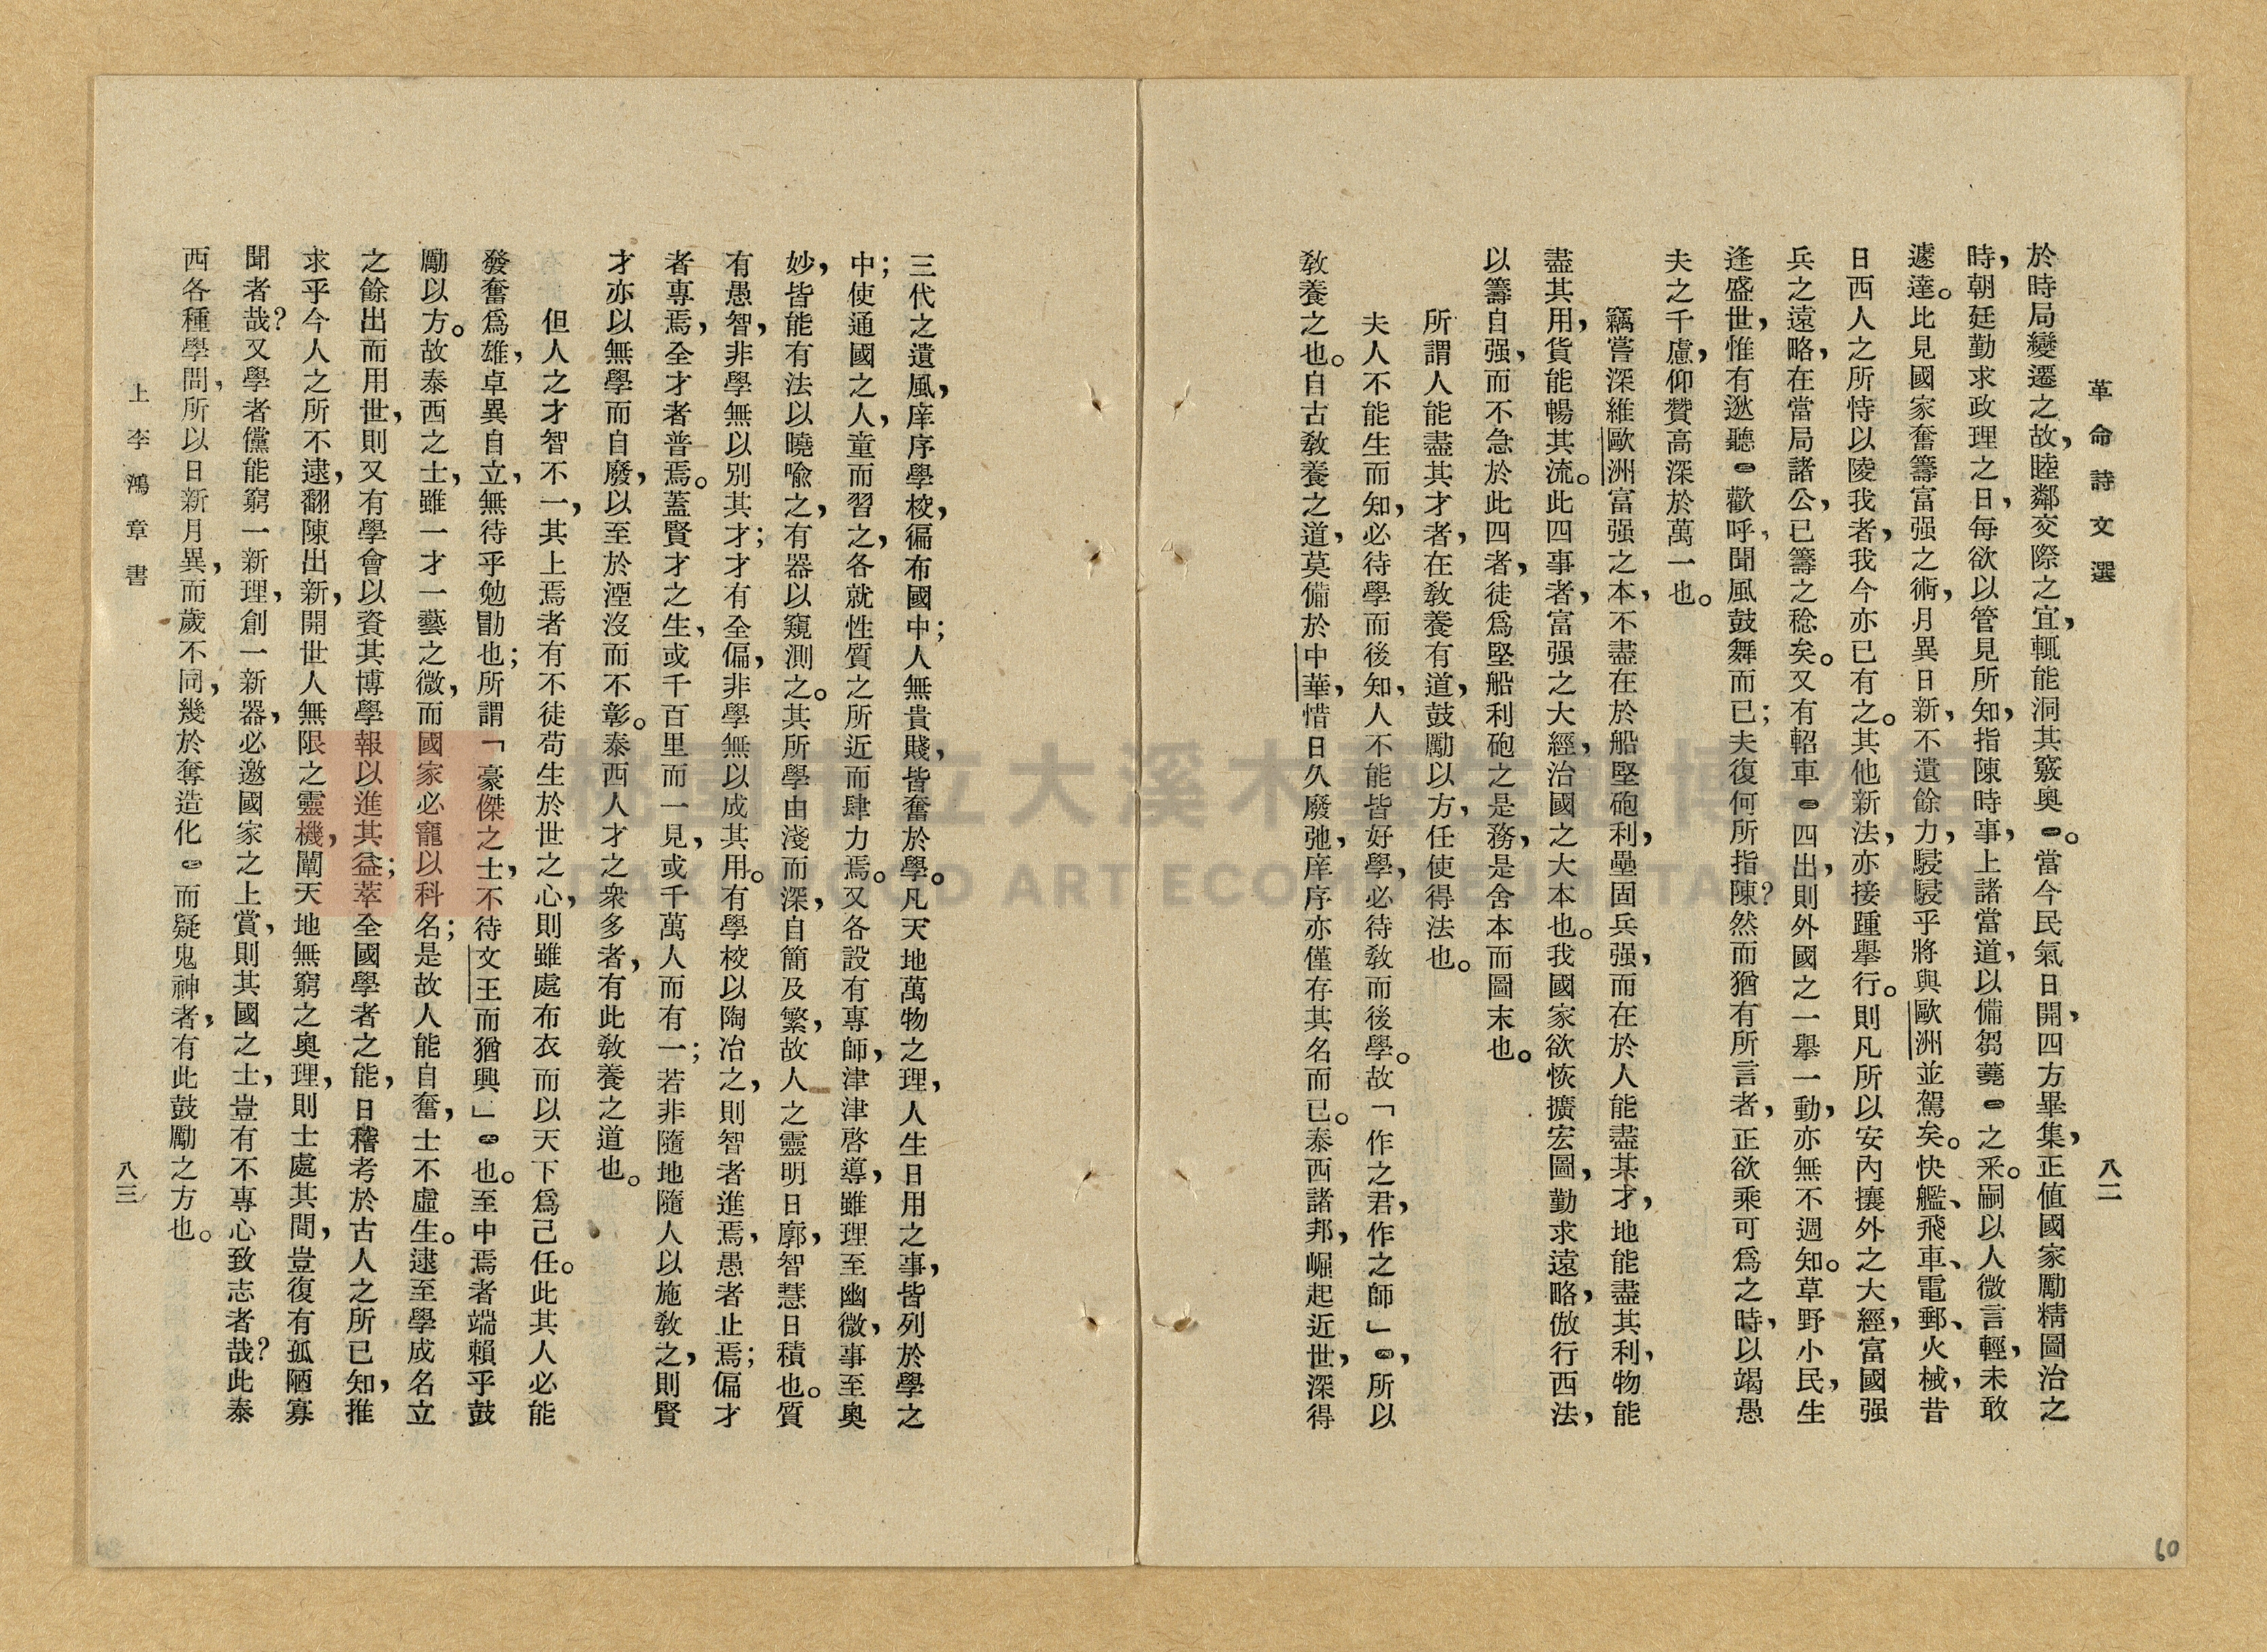 革命詩文選
八二
於時局變遷之故，睦鄰交際之宜，輒能洞其竅奧㊀。當今民氣日開，四方畢集，正值國家勵精圖治之
時，朝廷勤求政理之日，每欲以管見所知，指陳時事，上諸當道，以備芻蕘㊁之采。嗣以人微言輕，未敢
遽達。比見國家奮籌富强之術，月異日新，不遺餘力，駸駸乎將與歐洲並駕矣。快艦、飛車、電郵、火械，昔
日西人之所恃以陵我者，我今亦已有之。其他新法，亦接踵舉行。則凡所以安內攘外之大經，富國强
兵之遠略，在當局諸公，已籌之稔矣。又有軺車㊂四出，則外國之一舉一動，亦無不週知。草野小民，生
逢盛世，惟有逖聽㊃歡呼，聞風鼓舞而已；夫復何所指陳？然而猶有所言者，正欲乘可爲之時，以竭愚
夫之千慮，仰贊高深於萬一也。
竊嘗深維歐洲富强之本，不盡在於船堅砲利，壘固兵强，而在於人能盡其才，地能盡其利，物能
盡其用，貨能暢其流。此四事者，富强之大經，治國之大本也。我國家欲恢擴宏圖，勤求遠略，倣行西法，
以籌自强，而不急於此四者，徒爲堅船利砲之是務，是舍本而圖末也。
所謂人能盡其才者，在敎養有道，鼓勵以方，任使得法也。
夫人不能生而知，必待學而後知，人不能皆好學，必待敎而後學。故「作之君，作之師」㊄，所以
敎養之也。自古敎養之道，莫備於中華，惜日久廢弛，庠序亦僅存其名而已。泰西諸邦，崛起近世，深得
三代之遺風，庠序學校，徧布國中；人無貴賤，皆奮於學。凡天地萬物之理，人生日用之事，皆列於學之
中；使通國之人，童而習之，各就性質之所近而肆力焉。又各設有專師，津津啓導，雖理至幽微，事至奧
妙，皆能有法以曉喩之，有器以窺測之。其所學由淺而深，自簡及繁，故人之靈明日廓，智慧日積也。質
有愚智，非學無以別其才；才有全偏，非學無以成其用。有學校以陶冶之，則智者進焉，愚者止焉；偏才
者專焉，全才者普焉。蓋賢才之生，或千百里而一見，或千萬人而有一；若非隨地隨人以施敎之，則賢
才亦以無學而自廢，以至於湮沒而不彰。泰西人才之衆多者，有此敎養之道也。
但人之才智不一，其上焉者有不徒苟生於世之心，則雖處布衣而以天下爲己任。此其人必能
發奮爲雄，卓異自立，無待乎勉勖也；所謂「豪傑之士，不待文王而猶興」㊅也。至中焉者端賴乎鼓
勵以方。故泰西之士，雖一才一藝之微，而國家必寵以科名；是故人能自奮，士不虛生。逮至學成名立
之餘出而用世，則又有學會以資其博學報以進其益；萃全國學者之能，日稽考於古人之所已知，推
求乎今人之所不逮，翻陳出新，開世人無限之靈機，闡天地無窮之奧理，則士處其間，豈復有孤陋寡
聞者哉？又學者儻能窮一新理，創一新器，必邀國家之上賞，則其國之士，豈有不專心致志者哉？此泰
西各種學問，所以日新月異，而歲不同，幾於奪造化㊆而疑鬼神者，有此鼓勵之方也。
上李鴻章書
八三
60
桃園市立大溪木藝生態博物館
DAXI WOOD ART ECOMUSEUM, TAOYUAN